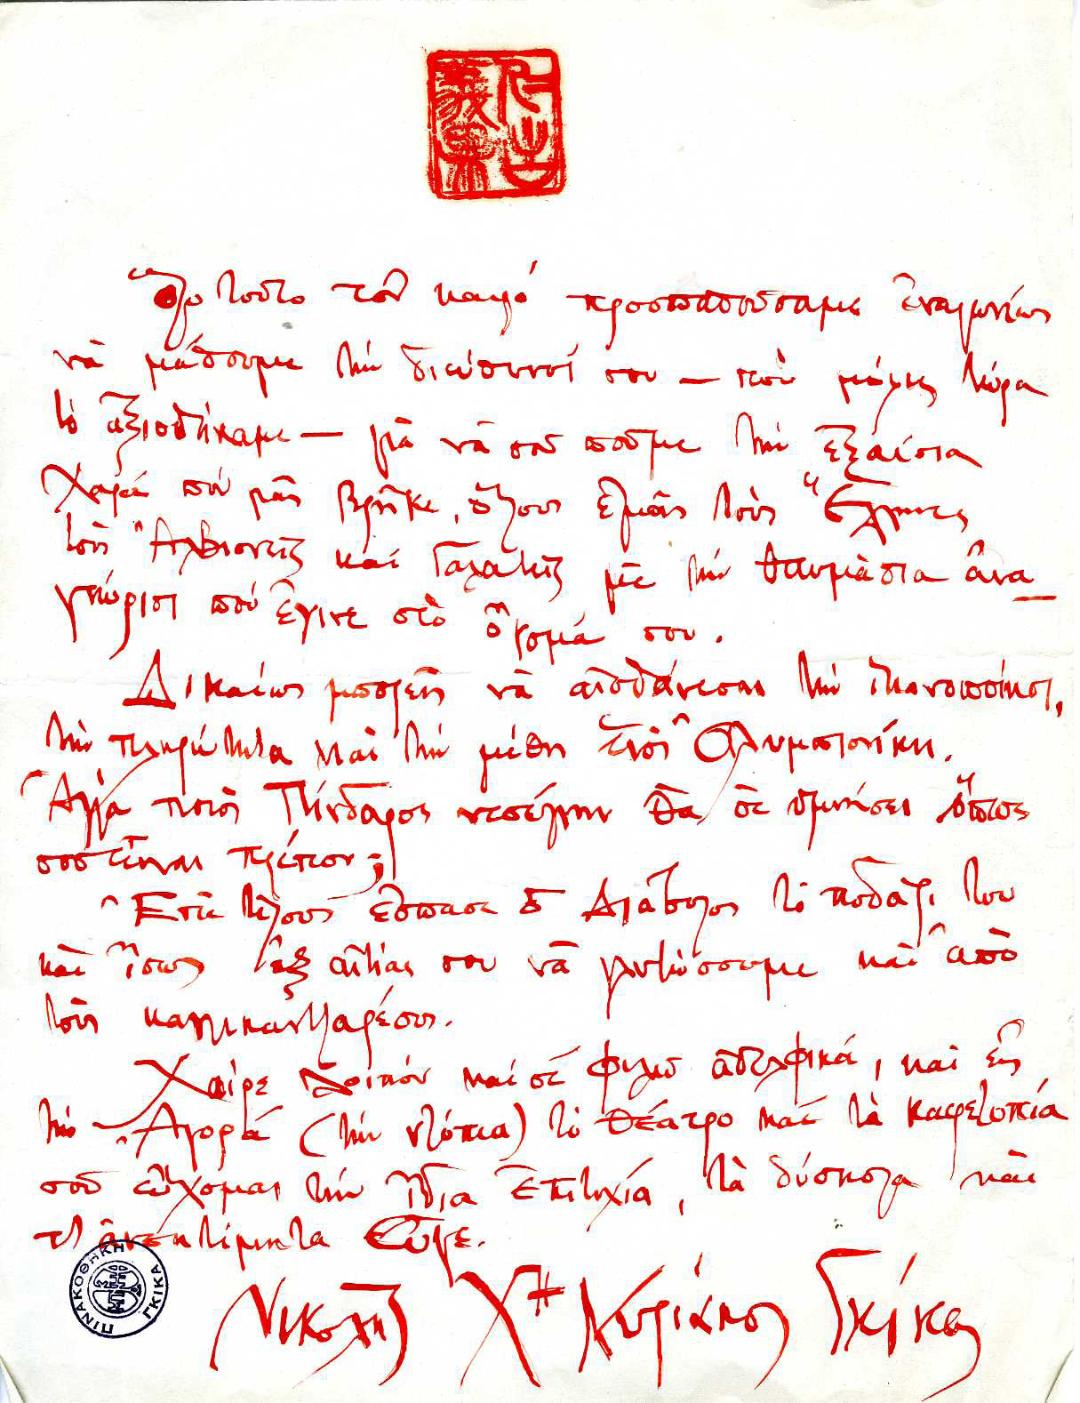 Ὅλο τοῦτο τὸν καιρό προσπαθούσαμε ἐναγωνίως
νὰ μάθουμε τὴν διεύθυνσί σου — ποὺ μόλις τώρα
τὸ ἀξιωθήκαμε — γιὰ νὰ σοῦ ποῦμε τὴν ἐξαίσια
Χαρά ποὺ μᾶς βρῆκε, ὅλους ἐμᾶς τοὺς Ἕλληνες
τοὺς Ἀλβιονεῖς καὶ Γαλάτες μὲ τὴν θαυμάσια ἀνα
γνώρισι ποὺ ἔγινε στὸ ὄνομά σου.
Δικαίως μπορεῖς νὰ αἰσθάνεσαι τὴν ἱκανοποίησι,
τὴν πληρότητα καὶ τὴν μέθη ἑνὸς Ὀλυμπιονίκη.
Ἀλλὰ ποιὸς Πίνδαρος νεοέλλην θὰ σὲ ὑμνήσει ὅπως
σοῦ εἶναι πρέπον;
Ἐπὶ τέλους ἔσπασε ὁ Διάβολος τὸ ποδάρι του
καὶ ἴσως ἐξ αἰτίας σου νὰ γλυτώσουμε καὶ ἀπὸ
τοὺς καλλικαντζαρέους.
Χαῖρε λοιπὸν καὶ σὲ φιλῶ ἀδελφικά, καὶ εἰς
τὴν Ἀγορά (τὴν ντόπια) τὸ θέατρο καὶ τὰ καφετοπία
σοῦ εὔχομαι τὴν ἴδια ἐπιτυχία, τὰ δύσκολα καὶ
τ' ἀνεκτίμητα Εὖγε.
Νικολῆς Χῆ Κυριάκος Γκίκας
ΠΙΝΑΚΟΘΗΚΗ ΓΚΙΚΑ